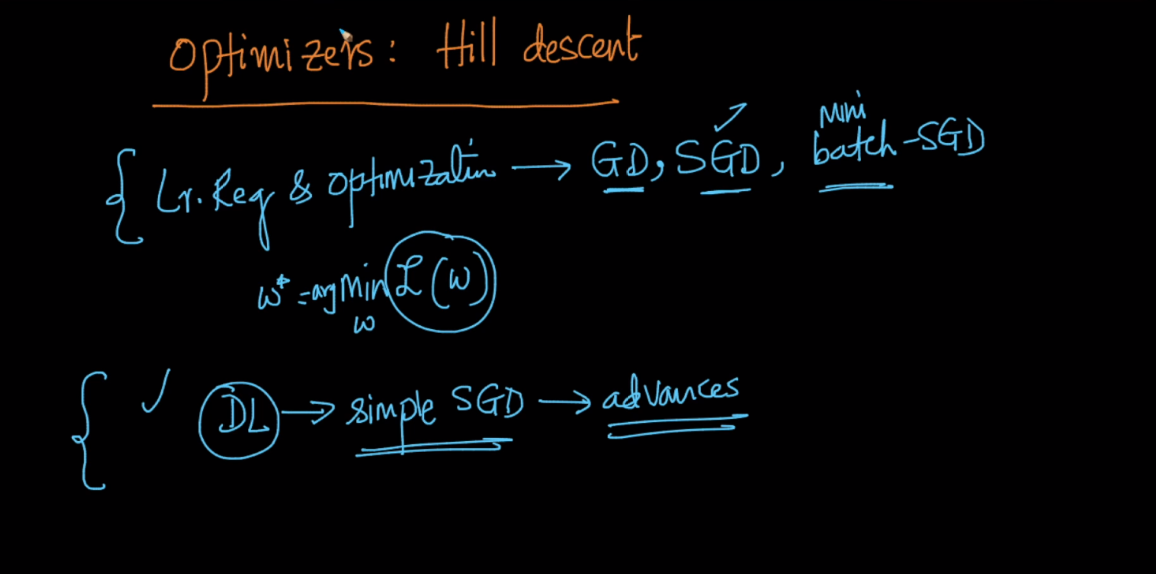 Optimizers: Hill descent
{ Lr. Reg & Optimization → GD, SGD, mini batch-SGD
w* = argmin L(w)
w
{ ✓ DL → simple SGD → advances